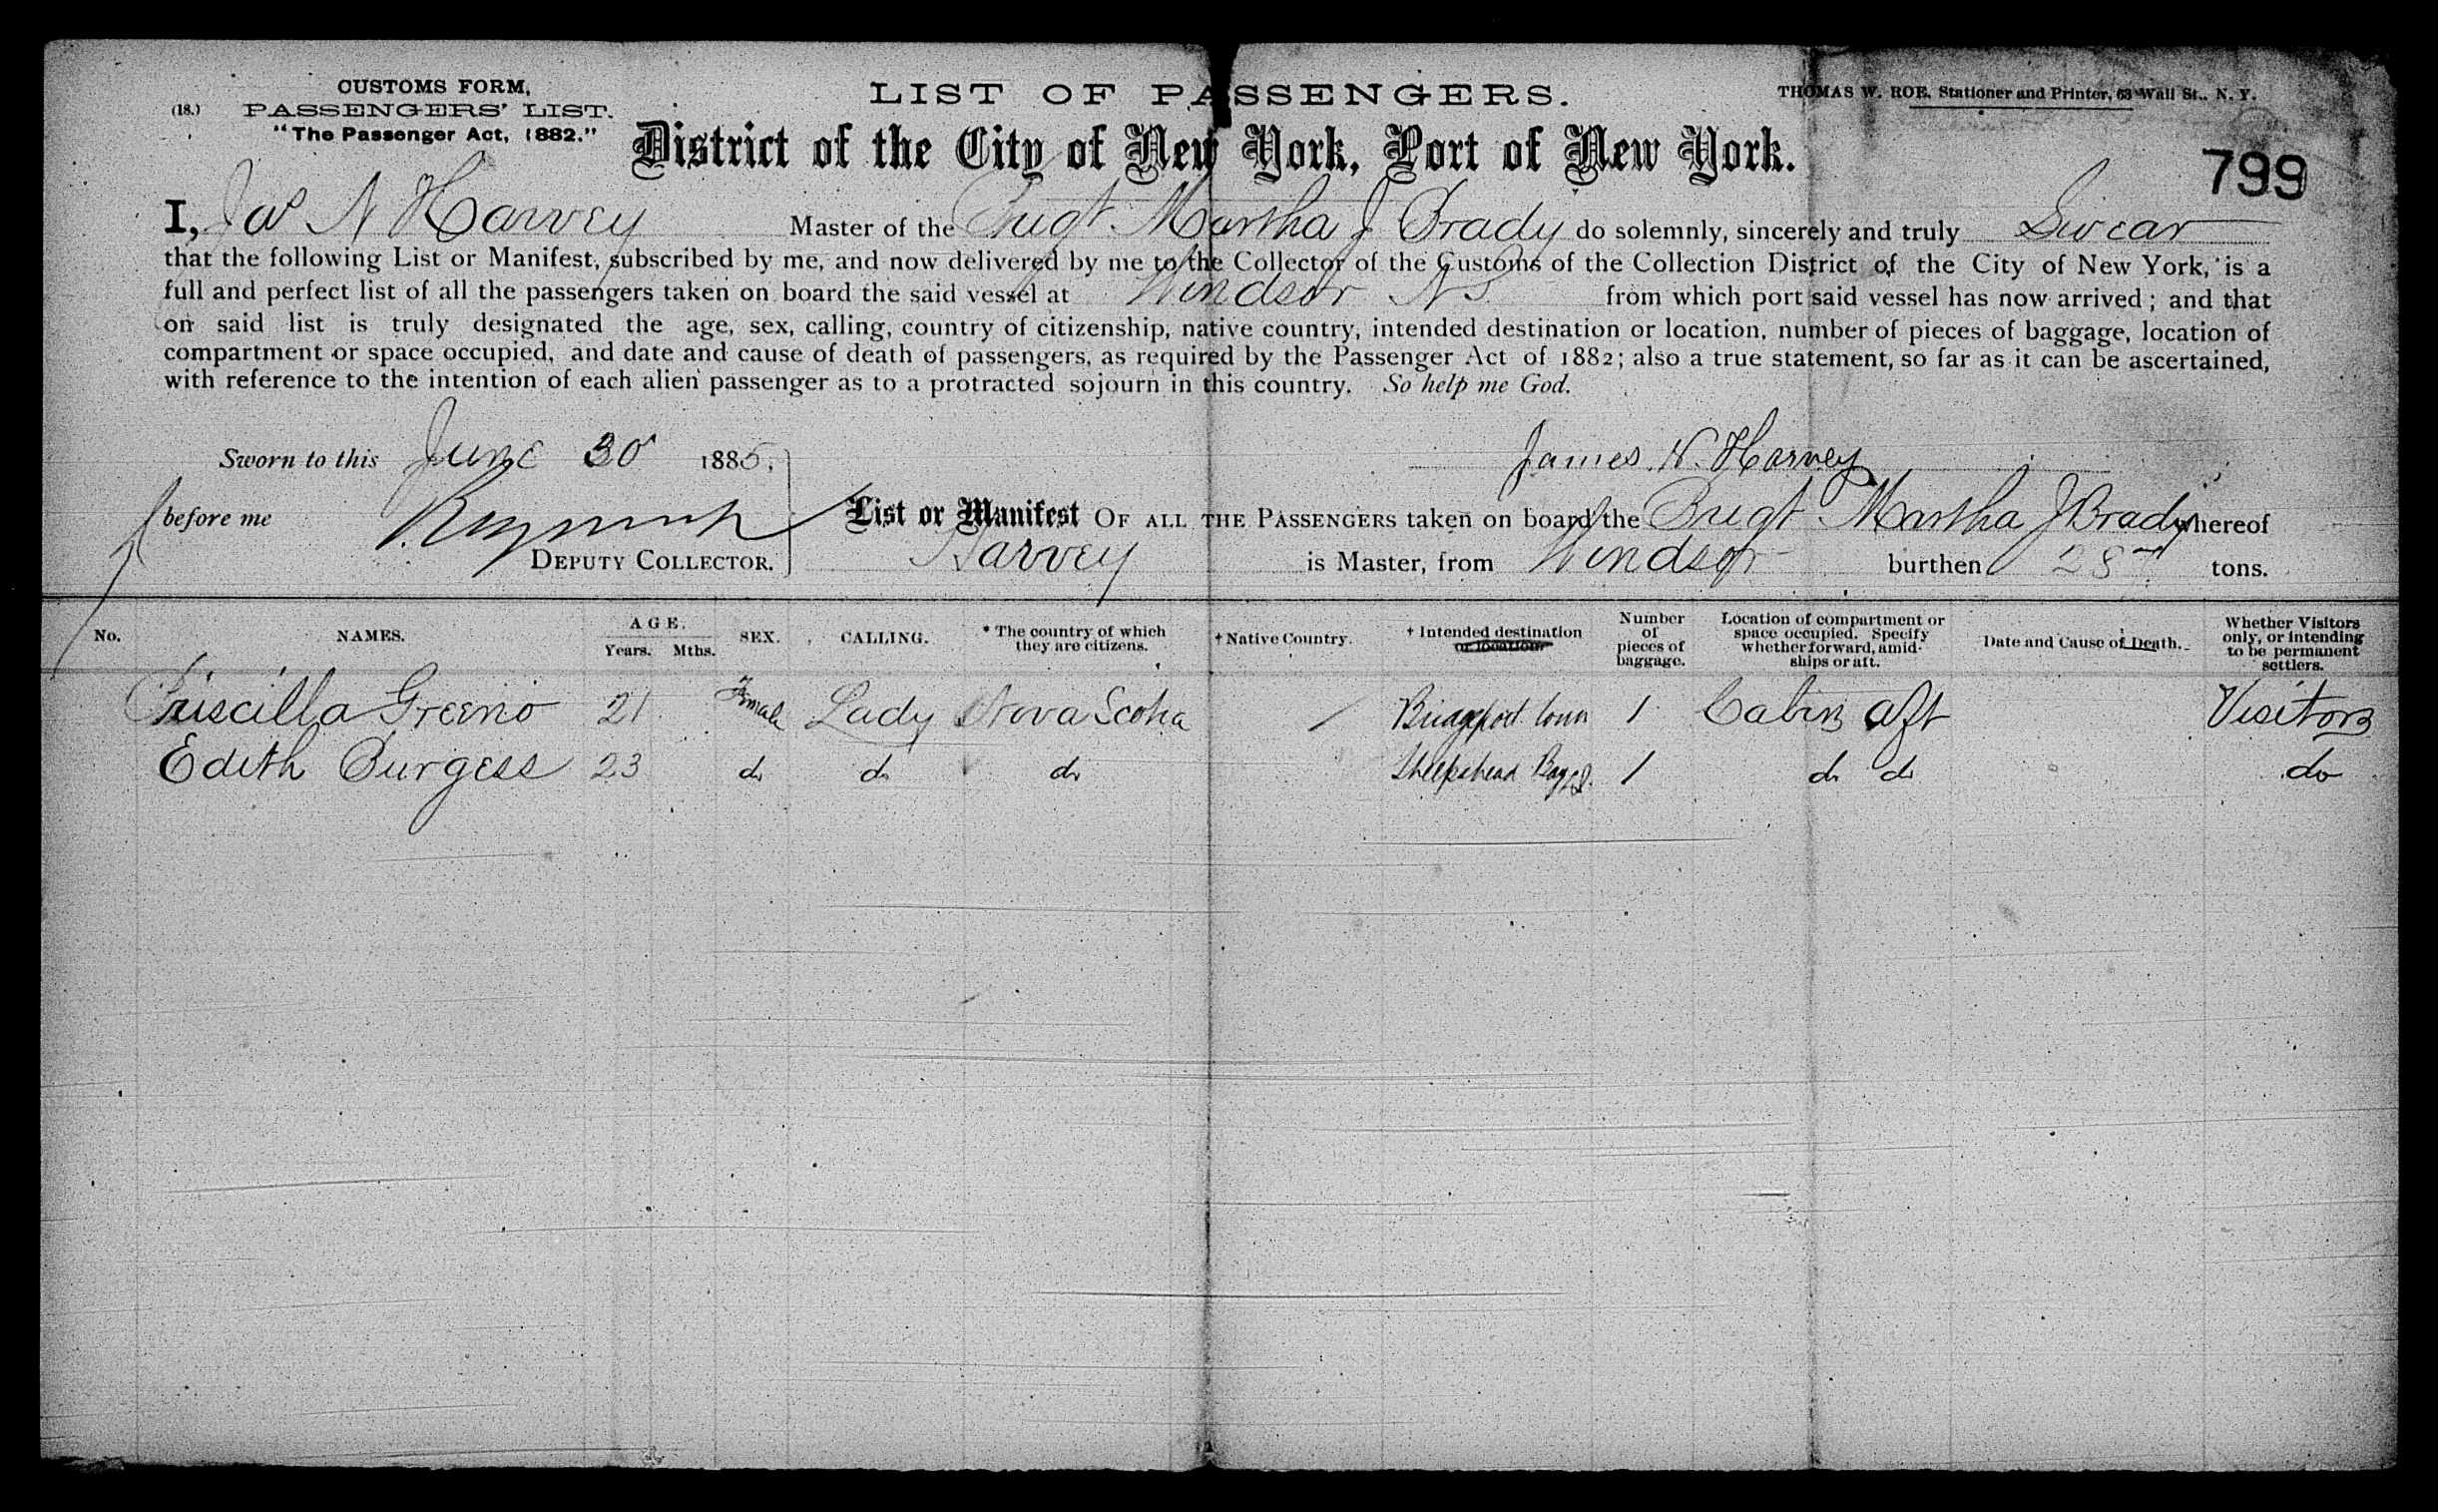 CUSTOMS FORM,
(18.) PASSENGERS' LIST.
"The Passenger Act, 1882."
LIST OF PASSENGERS.
THOMAS W. ROE, Stationer and Printer, 63 Wall St., N. Y.
District of the City of New York, Port of New York.
799
I, Jas N Harvey Master of the Brigt Martha J Brady do solemnly, sincerely and truly Swear
that the following List or Manifest, subscribed by me, and now delivered by me to the Collector of the Customs of the Collection District of the City of New York, is a
full and perfect list of all the passengers taken on board the said vessel at Windsor N S from which port said vessel has now arrived; and that
on said list is truly designated the age, sex, calling, country of citizenship, native country, intended destination or location, number of pieces of baggage, location of
compartment or space occupied, and date and cause of death of passengers, as required by the Passenger Act of 1882; also a true statement, so far as it can be ascertained,
with reference to the intention of each alien passenger as to a protracted sojourn in this country. So help me God.
Sworn to this June 30 1885,
James N. Harvey
before me
List or Manifest OF ALL THE PASSENGERS taken on board the Brigt Martha J Brady whereof
DEPUTY COLLECTOR.
Harvey is Master, from Windsor burthen tons.
No. NAMES. AGE. Years. Mths. SEX. CALLING. * The country of which they are citizens. † Native Country. † Intended destination or location. Number of pieces of baggage. Location of compartment or space occupied. Specify whether forward, amidships or aft. Date and Cause of Death. Whether Visitors only, or intending to be permanent settlers.
Priscilla Greeno 21 Female Lady Nova Scotia / Bridgeport Conn 1 Cabin aft Visitors
Edith Burgess 23 do do do Sheepshead Bay L.I. 1 do do do